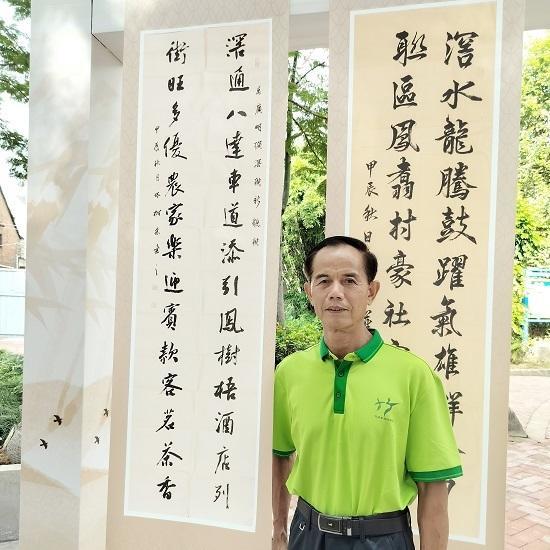 滘水龍騰鼓躍氣雄
聯區鳳翥村豪社
甲辰秋日
滘通八達車道添引鳳樹梧酒店列
街旺多優農家樂迎賓款客茗茶香
甲辰秋月